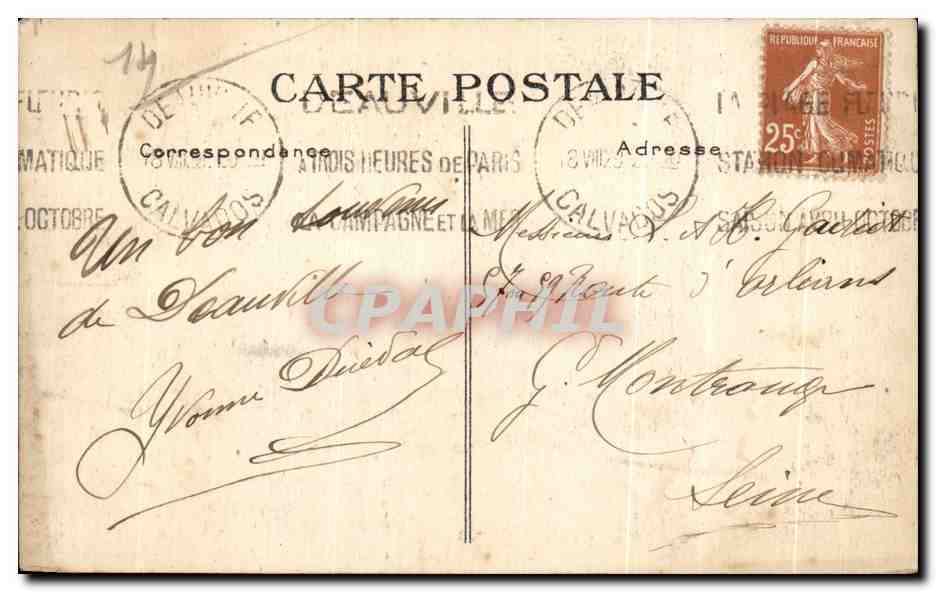 14
CARTE POSTALE
Correspondance
Adresse
REPUBLIQUE FRANÇAISE
25c
POSTES
DEAUVILLE
CALVADOS
DEAUVILLE
A TROIS HEURES DE PARIS
LA CAMPAGNE ET LA MER
CALVADOS
LA PLAGE FLEURI
STATION CLIMATIQUE
SAISON AVRIL-OCTOBRE
MATIQUE
OCTOBRE
Un bon souvenir
de Deauville
Yvonne
Messieurs
Route d'Orléans
G. Montrouge
Seine
CPAPHIL